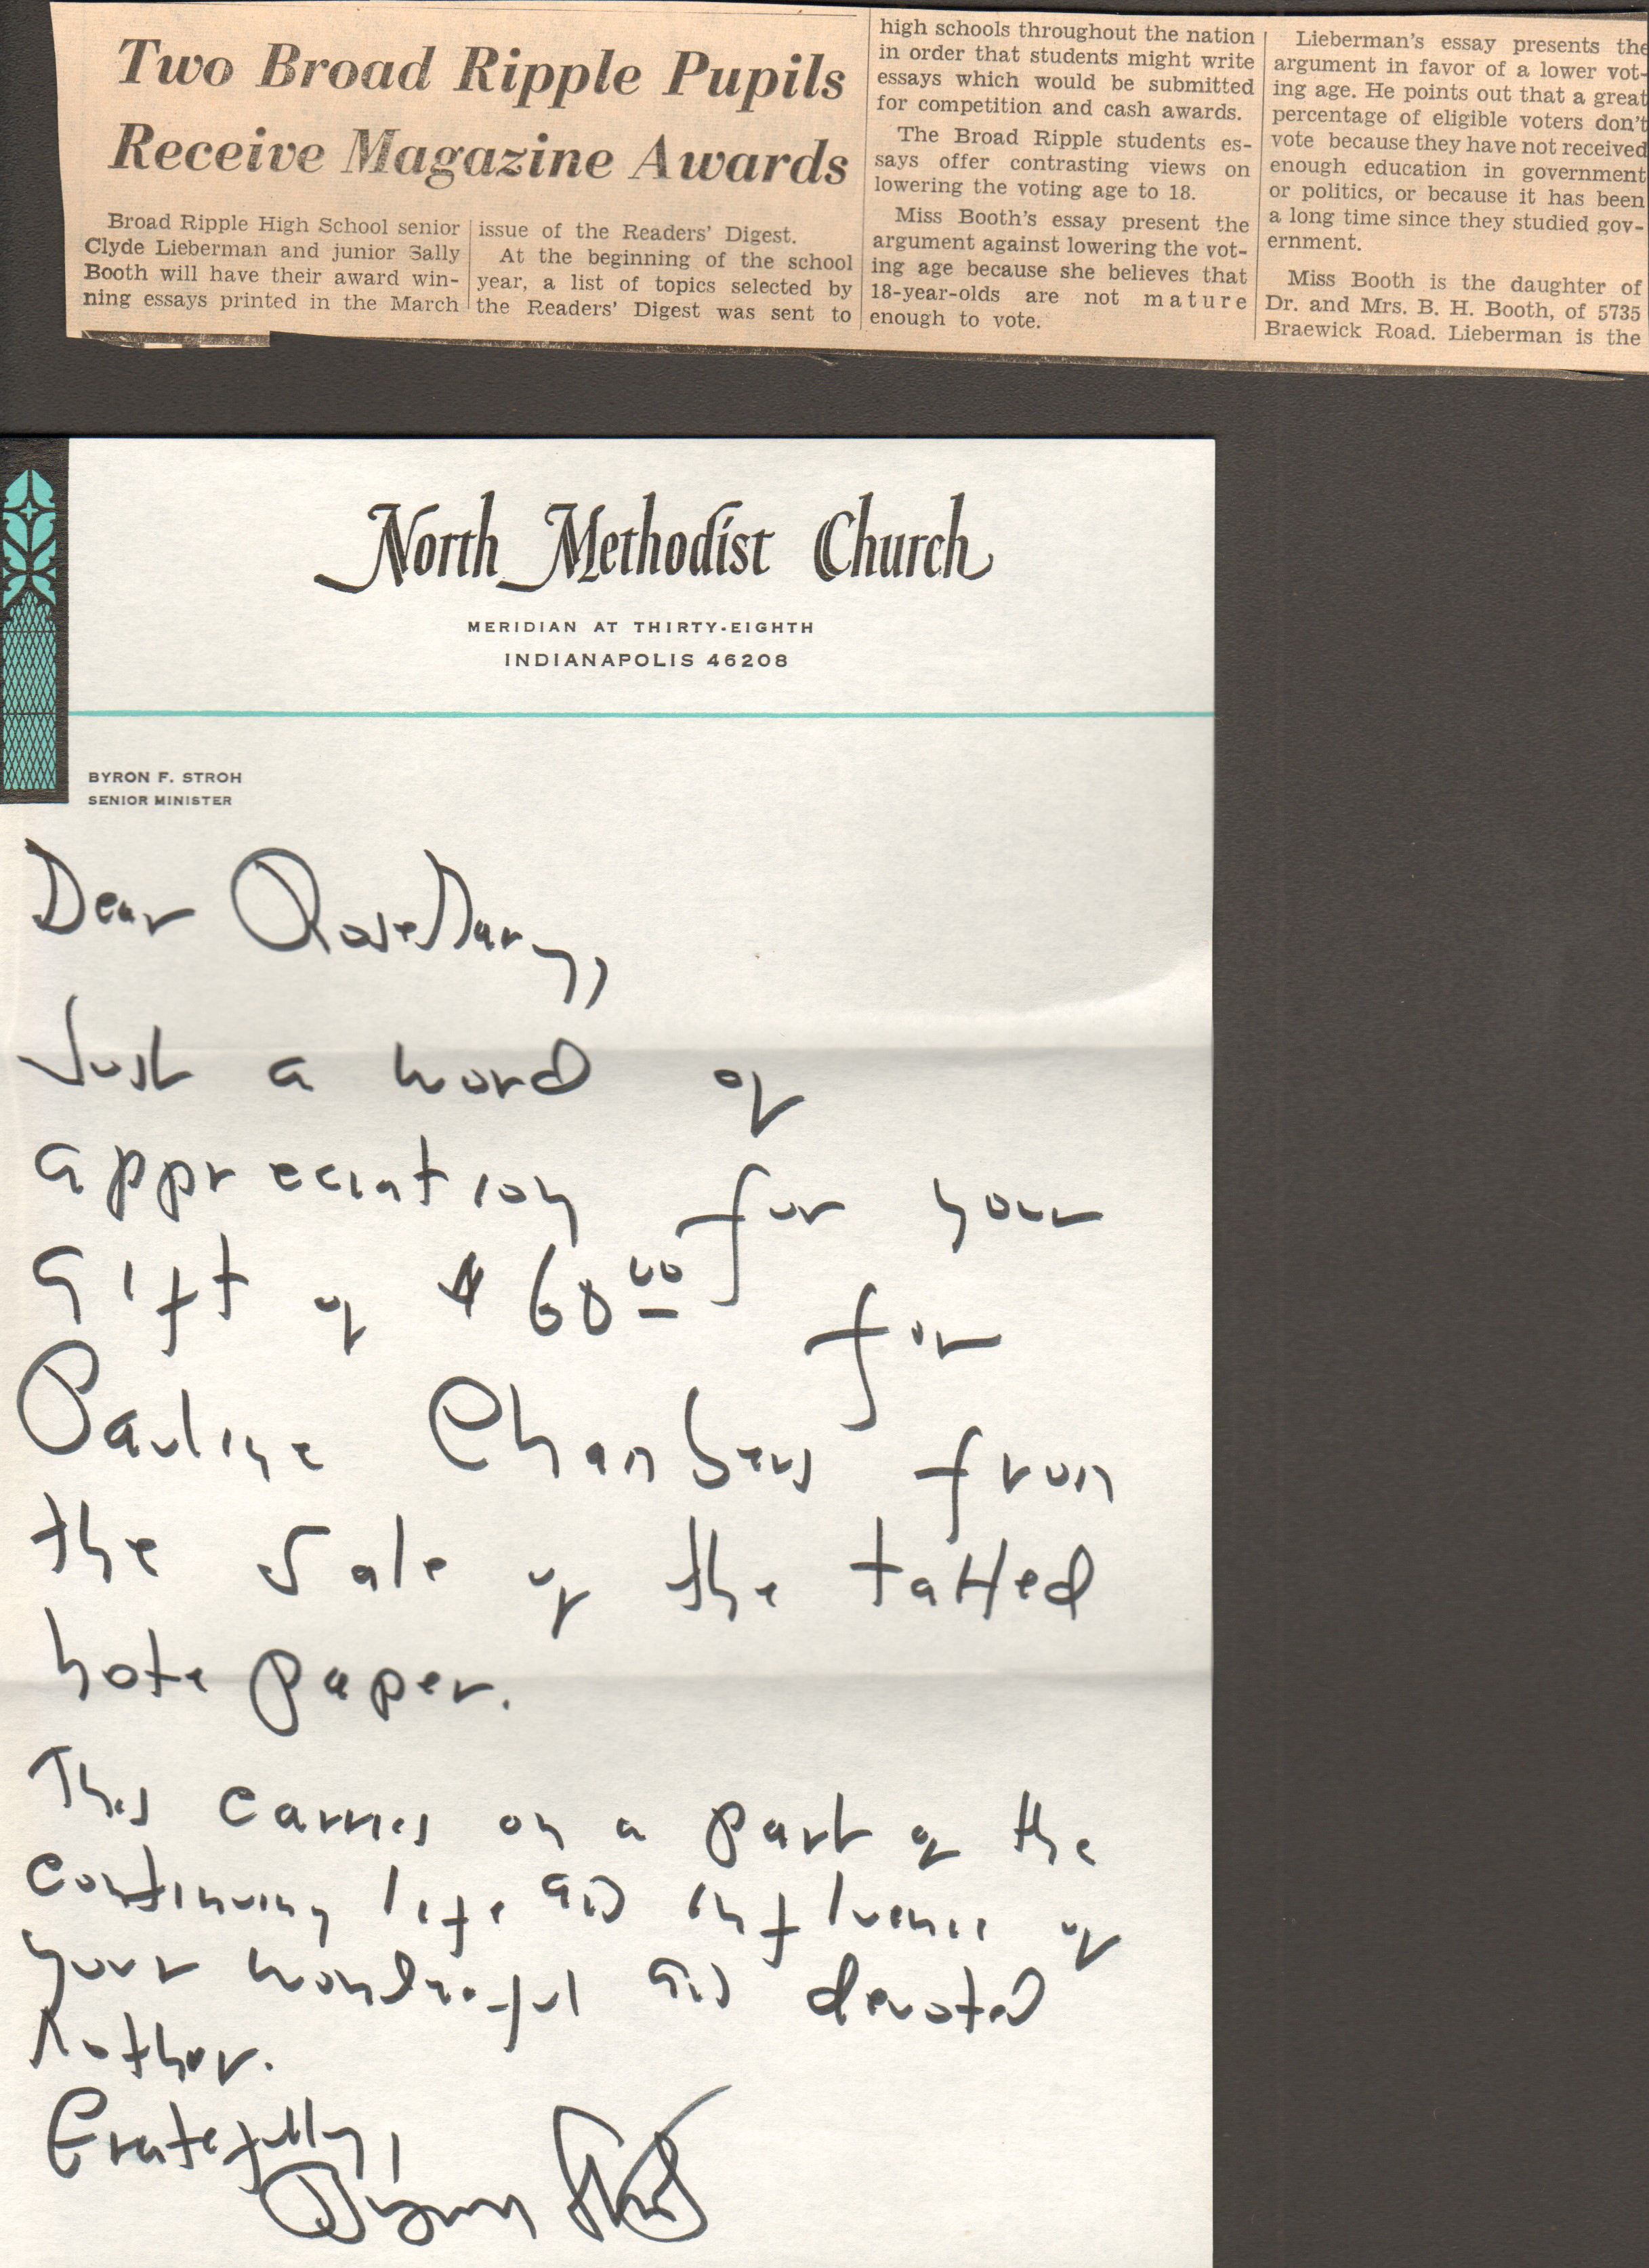 Two Broad Ripple Pupils
Receive Magazine Awards
Broad Ripple High School senior
Clyde Lieberman and junior Sally
Booth will have their award win-
ning essays printed in the March
issue of the Readers' Digest.
At the beginning of the school
year, a list of topics selected by
the Readers' Digest was sent to
high schools throughout the nation
in order that students might write
essays which would be submitted
for competition and cash awards.
The Broad Ripple students es-
says offer contrasting views on
lowering the voting age to 18.
Miss Booth's essay present the
argument against lowering the vot-
ing age because she believes that
18-year-olds are not mature
enough to vote.
Lieberman's essay presents the
argument in favor of a lower vot-
ing age. He points out that a great
percentage of eligible voters don't
vote because they have not received
enough education in government
or politics, or because it has been
a long time since they studied gov-
ernment.
Miss Booth is the daughter of
Dr. and Mrs. B. H. Booth, of 5735
Braewick Road. Lieberman is the
North Methodist Church
MERIDIAN AT THIRTY-EIGHTH
INDIANAPOLIS 46208
BYRON F. STROH
SENIOR MINISTER
Dear RoseMary,
Just a word of
appreciation for your
gift of $60.00 for
Pauline Chambers from
the sale of the tatted
note paper.
This carries on a part of the
continuing life and influence of
your wonderful and devoted
Mother.
Gratefully,
Byron Stroh